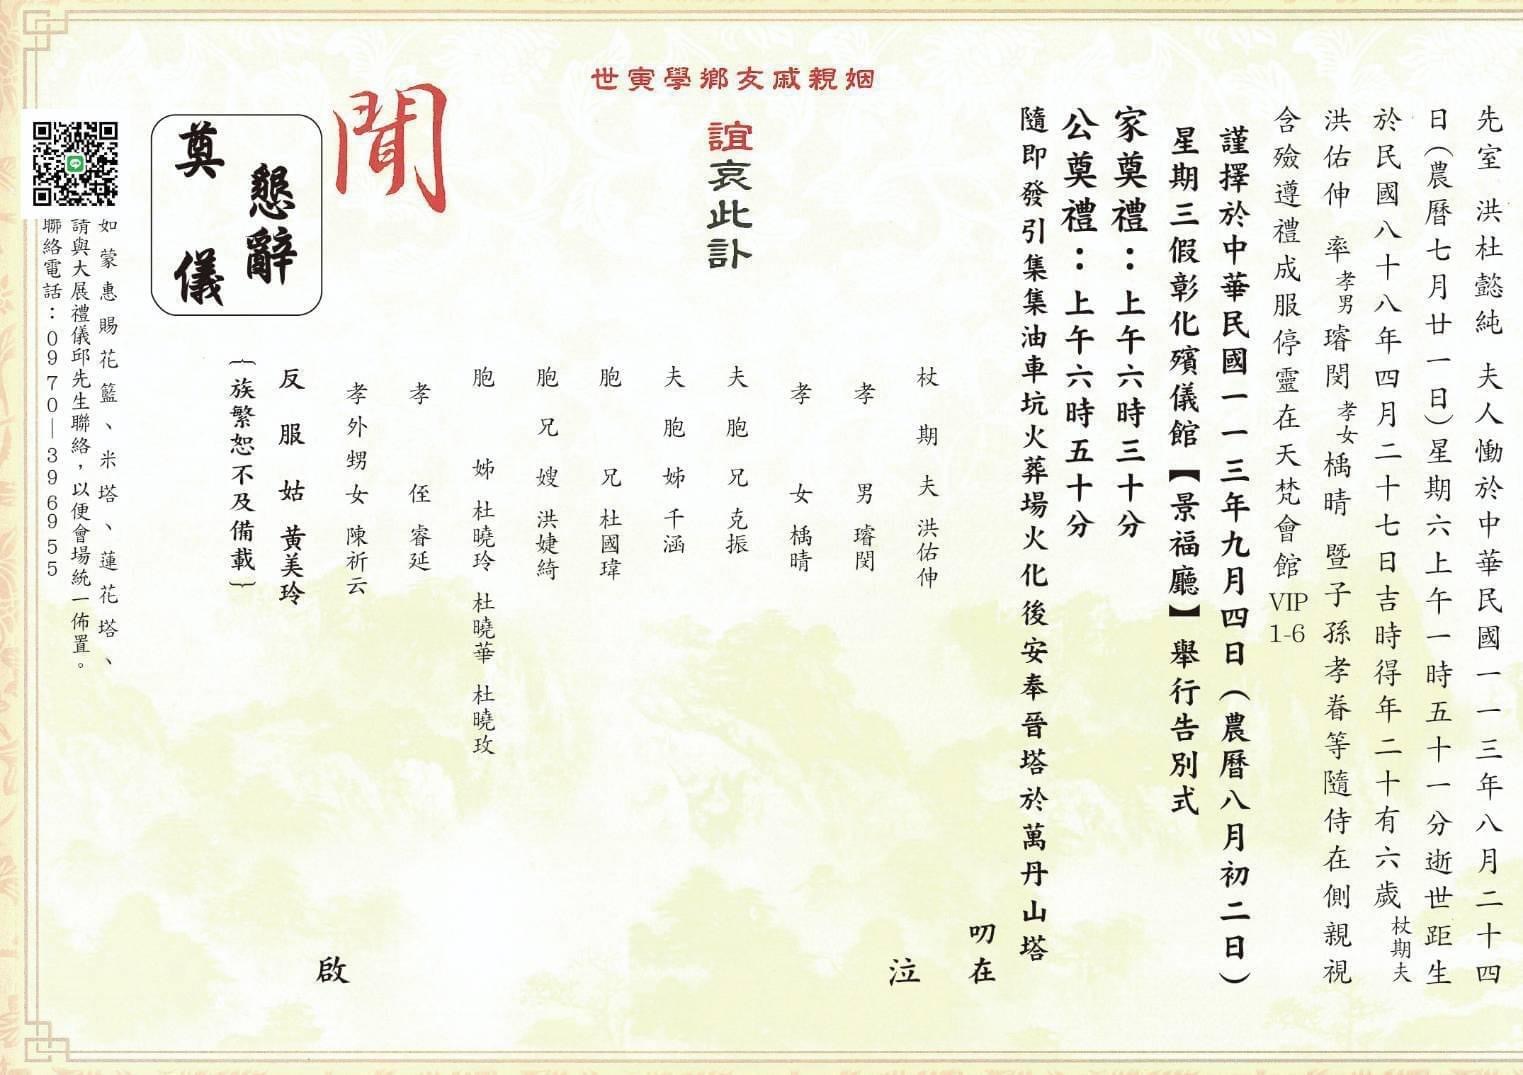 先室 洪杜懿純 夫人慟於中華民國一一三年八月二十四
日(農曆七月廿一日)星期六上午一時五十一分逝世距生
於民國八十八年四月二十七日吉時得年二十有六歲 杖期夫
洪佑伸 率 孝男 璿閔 孝女 楀晴 暨子孫孝眷等隨侍在側親視
含殮遵禮成服停靈在天梵會館 VIP 1-6
謹擇於中華民國一一三年九月四日(農曆八月初二日)
星期三假彰化殯儀館【景福廳】舉行告別式
家奠禮：上午六時三十分
公奠禮：上午六時五十分
隨即發引集集油車坑火葬場火化後安奉晉塔於萬丹山塔
叨在
世寅學鄉友戚親姻
誼哀此訃
聞
杖期夫 洪佑伸
孝男 璿閔
孝女 楀晴
夫胞兄 克振
夫胞姊 千涵
胞兄 杜國瑋
胞兄嫂 洪婕綺
胞姊 杜曉玲 杜曉華 杜曉玫
孝侄 睿延
孝外甥女 陳祈云
反服姑 黃美玲
{族繁恕不及備載}
泣
啟
懇辭
奠儀
如蒙惠賜花籃、米塔、蓮花塔、
請與大展禮儀邱先生聯絡，以便會場統一佈置。
聯絡電話：0970—396955